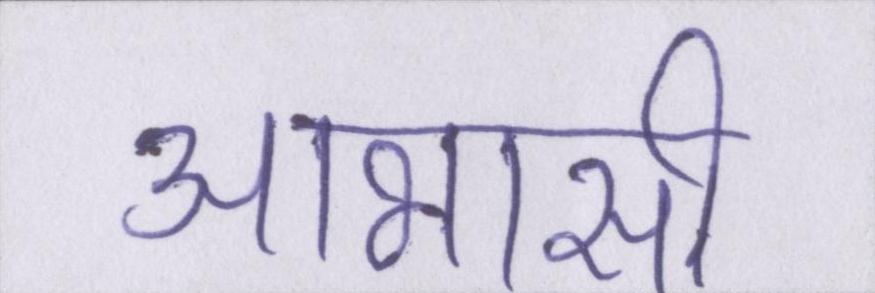 आभासी